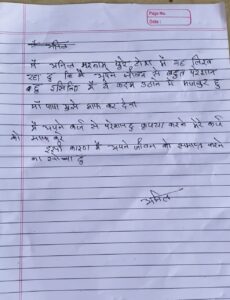 Page No.
Date :
मैं अनिल
मैं अनिल पूरे होश में यह लिख
रहा हु कि मैं अपने जीवन से बहुत परेशान
हु इसलिए मैं ये कदम उठाने में मजबूर हु
माँ पापा मुझे माफ कर देना
मैं अपने कर्ज से परेशान हु कृपया करके मेरे कर्ज
को माफ करे
इसी कारण मैं अपने जीवन को समाप्त करने
जा रहा हु
अनिल